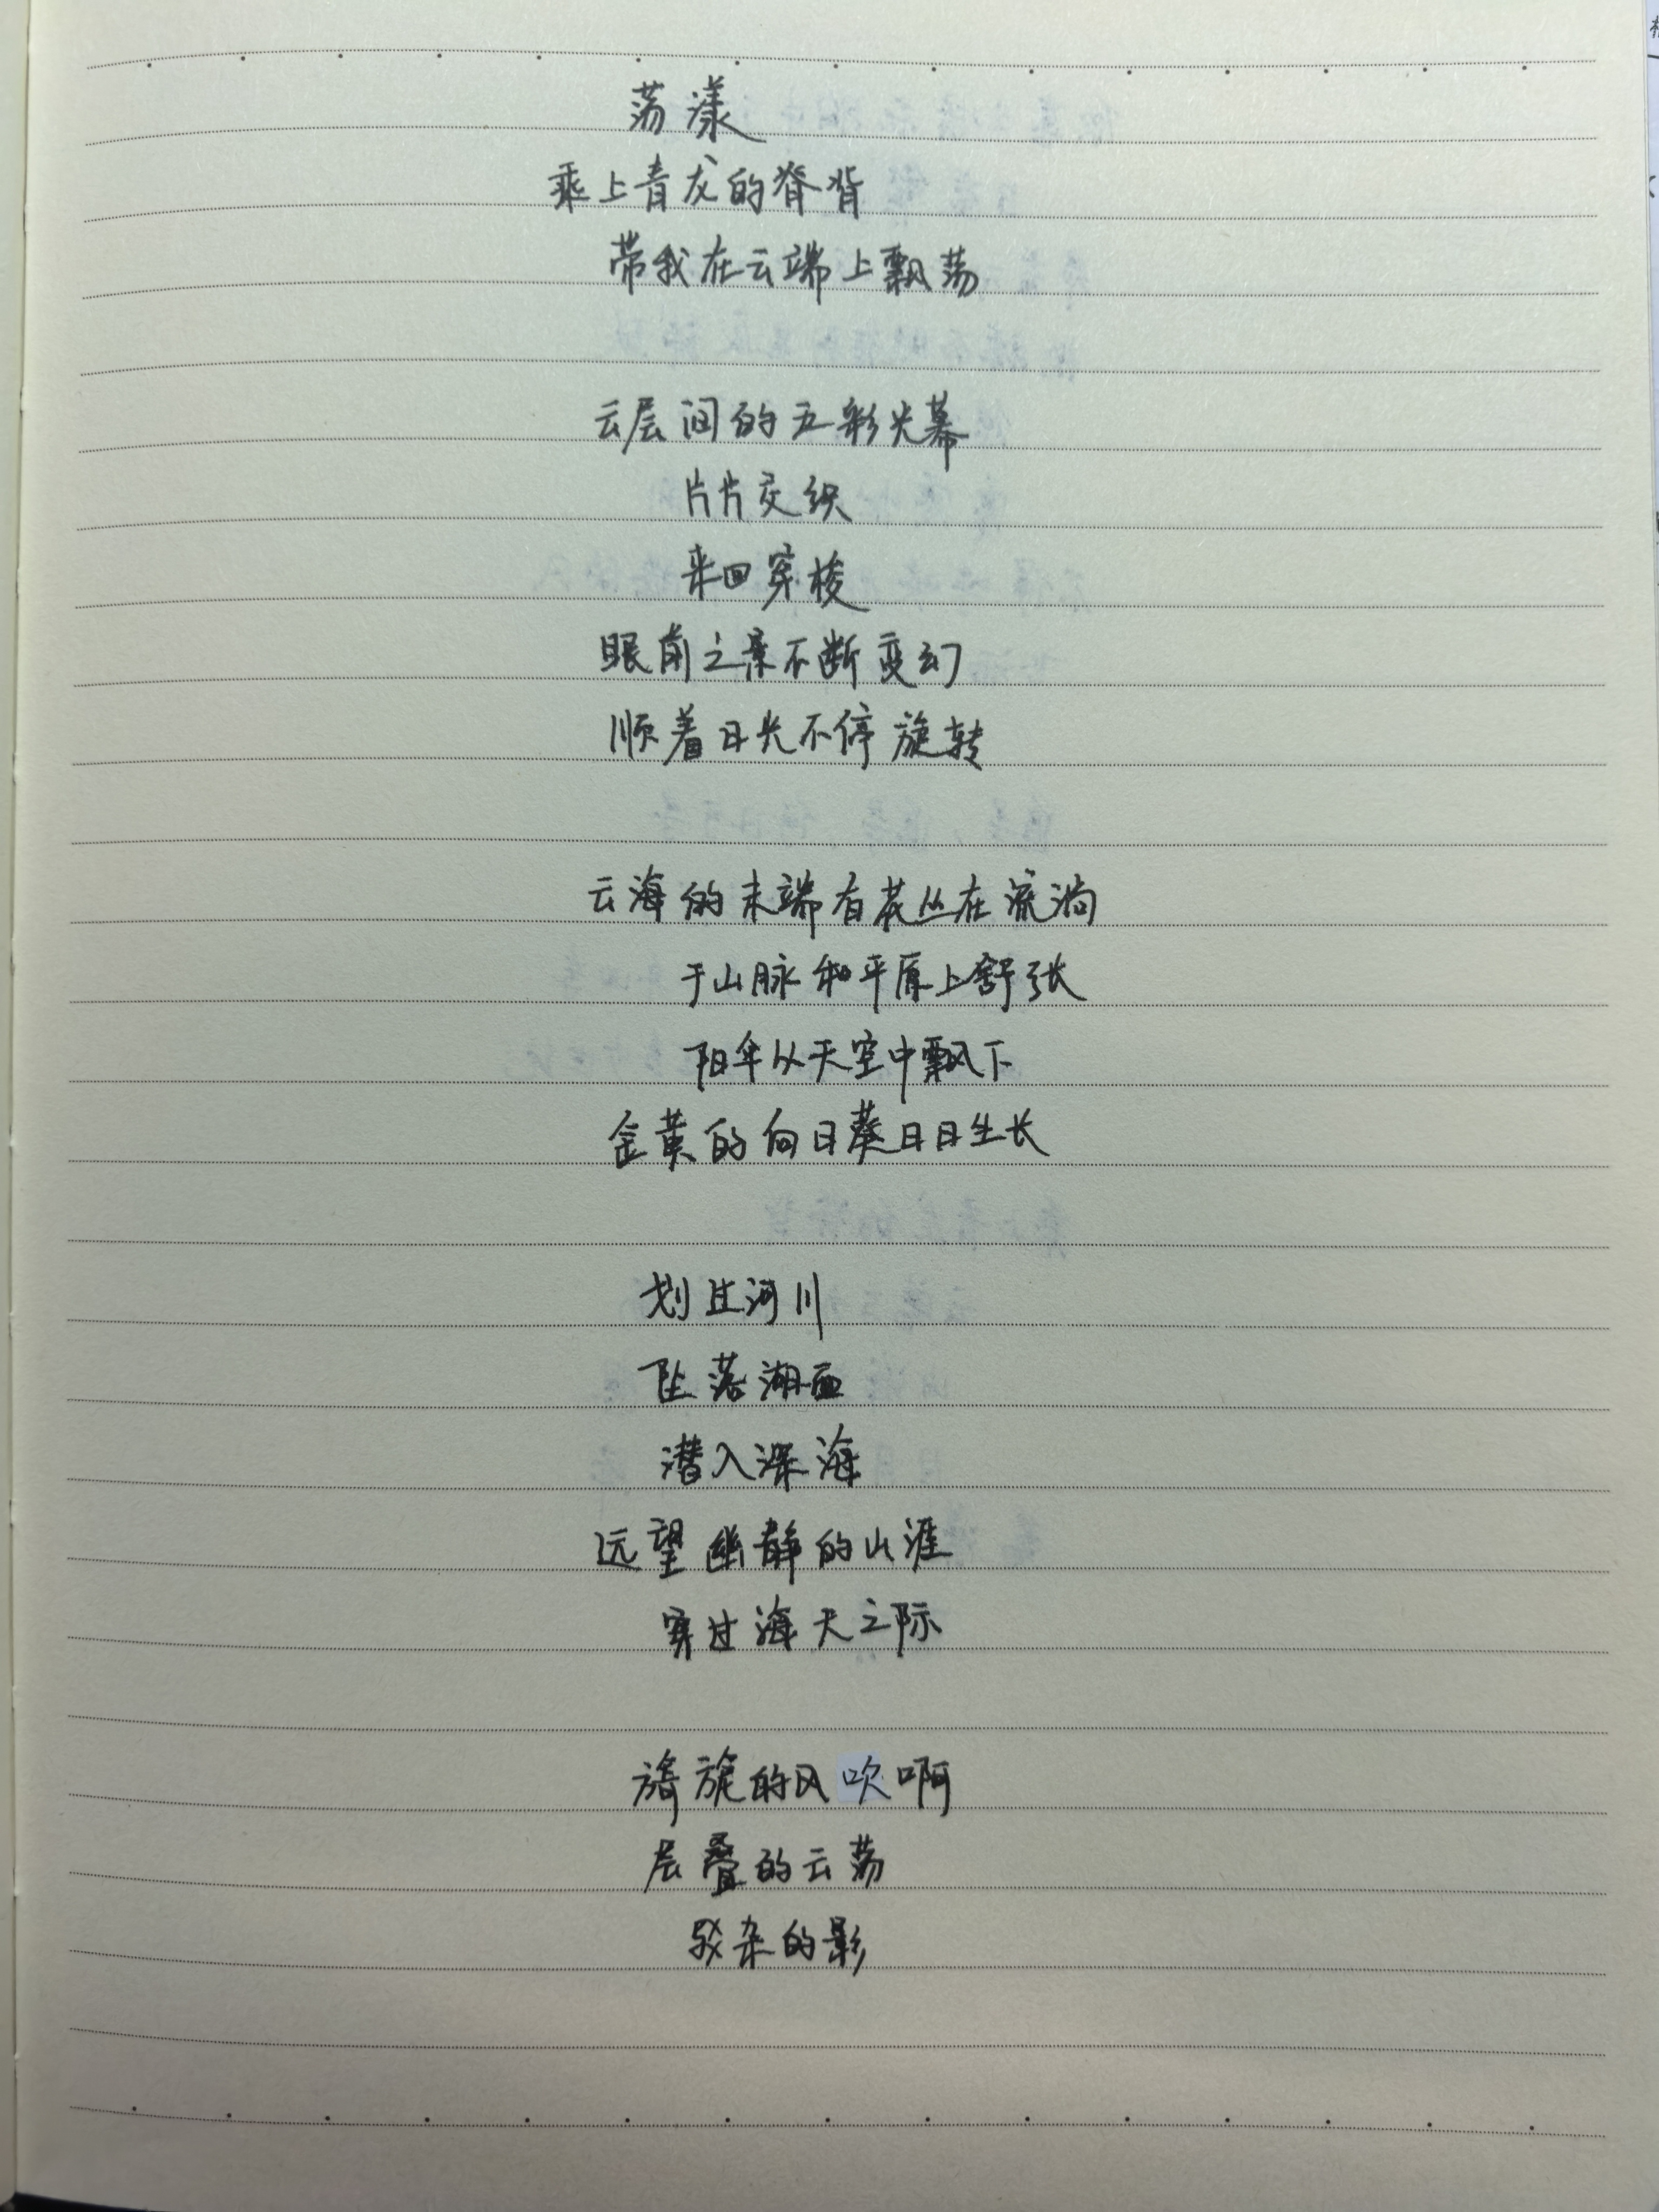 荡漾
乘上青龙的脊背
带我在云端上飘荡
云层间的五彩光幕
片片交织
来回穿梭
眼前之景不断变幻
顺着日光不停旋转
云海的末端有花丛在流淌
于山脉和平原上舒张
阳伞从天空中飘下
金黄的向日葵日日生长
划过河川
坠落湖面
潜入深海
远望幽静的山涯
穿过海天之际
旖旎的风吹啊
层叠的云荡
驳杂的影